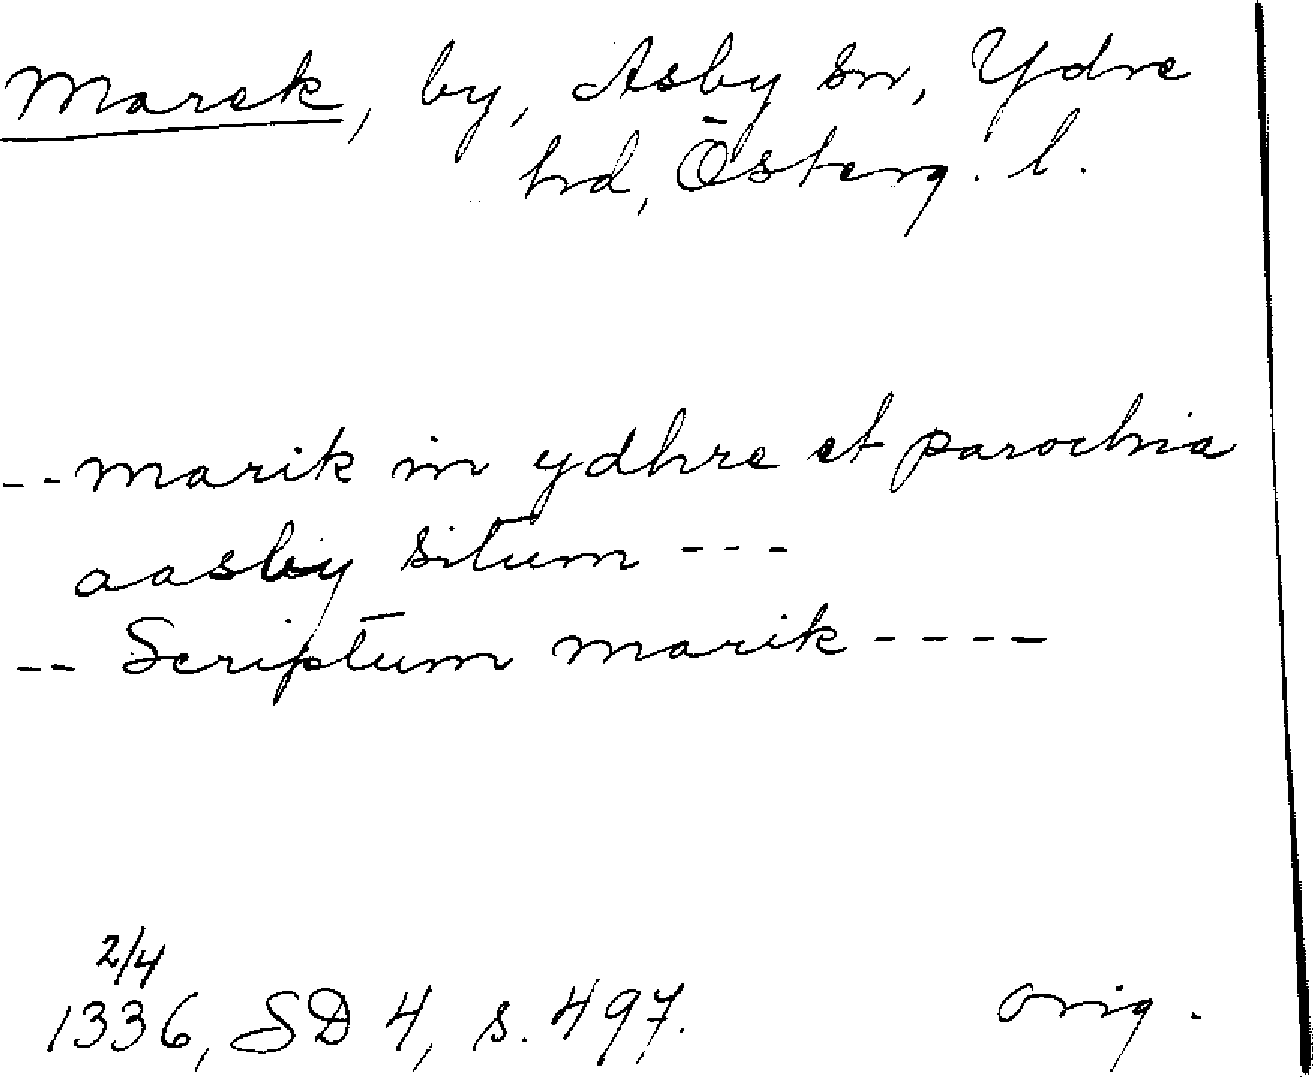 Marek, by, Asby sn, Ydre
hd, Österg. l.
-- marik in ydhre et parochia
aasby situm ---
-- Scriptum marik ----
2/4
1336, SD 4, s. 497. orig.